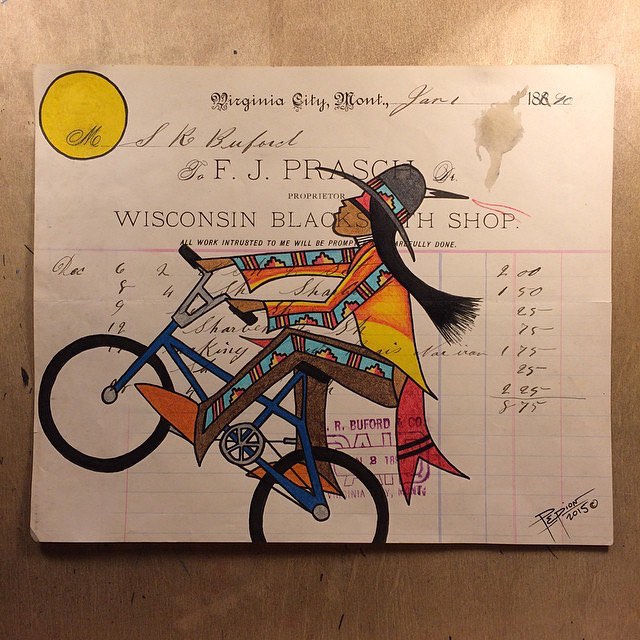 Virginia City, Mont., Jan 1 1890
M S R Buford
To F. J. PRASCH, Dr.
PROPRIETOR
WISCONSIN BLACKSMITH SHOP.
ALL WORK INTRUSTED TO ME WILL BE PROMP AREFULLY DONE.
Dec 6 2 2 00
8 4 Sh Sha 1 50
9 25
12 Sharpen Sh 75
king iron 1 75
25
2 25
8 75
. R. BUFORD & CO
PAID
N 2 18
VIRGINIA CITY, MONT.
PEPION
2015©